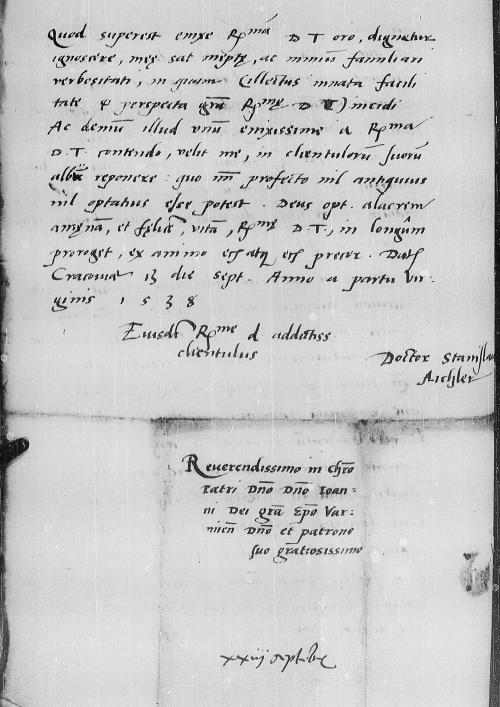 Quod superest enixe Rp̄ma D T oro, dignetur
ignoscere, meę sat ineptę, ac nimiū familiari
verbositati, in quam illectus innata facili
tate & perspecta grā Rp̄mę D T) incidi
Ac demū illud vnū enixissime a Rp̄ma
D. T. contendo, velit me, in clientulorū suorū
reponere: quo m̄ profecto nil antiquius
nil optatius esse potest. Deus opt. alacrem
amęnā, et fęlicē, vitā, Rp̄mę D T., in longum
proroget, ex animo etiā atq̨ etiā precor. Datę
Cracouię 13 die Sept. Anno a partu vir-
ginis 1538
Eiusdē Rp̄me d addictiss
clientulus
Doctor Stanislaus
Aichler
Reuerendissimo in Chrō
Patri Dnō Dnō Ioan-
ni Dei grā Epō Var:
mień Dnō et patrono
suo gratiosissimo
xxiij septēbr